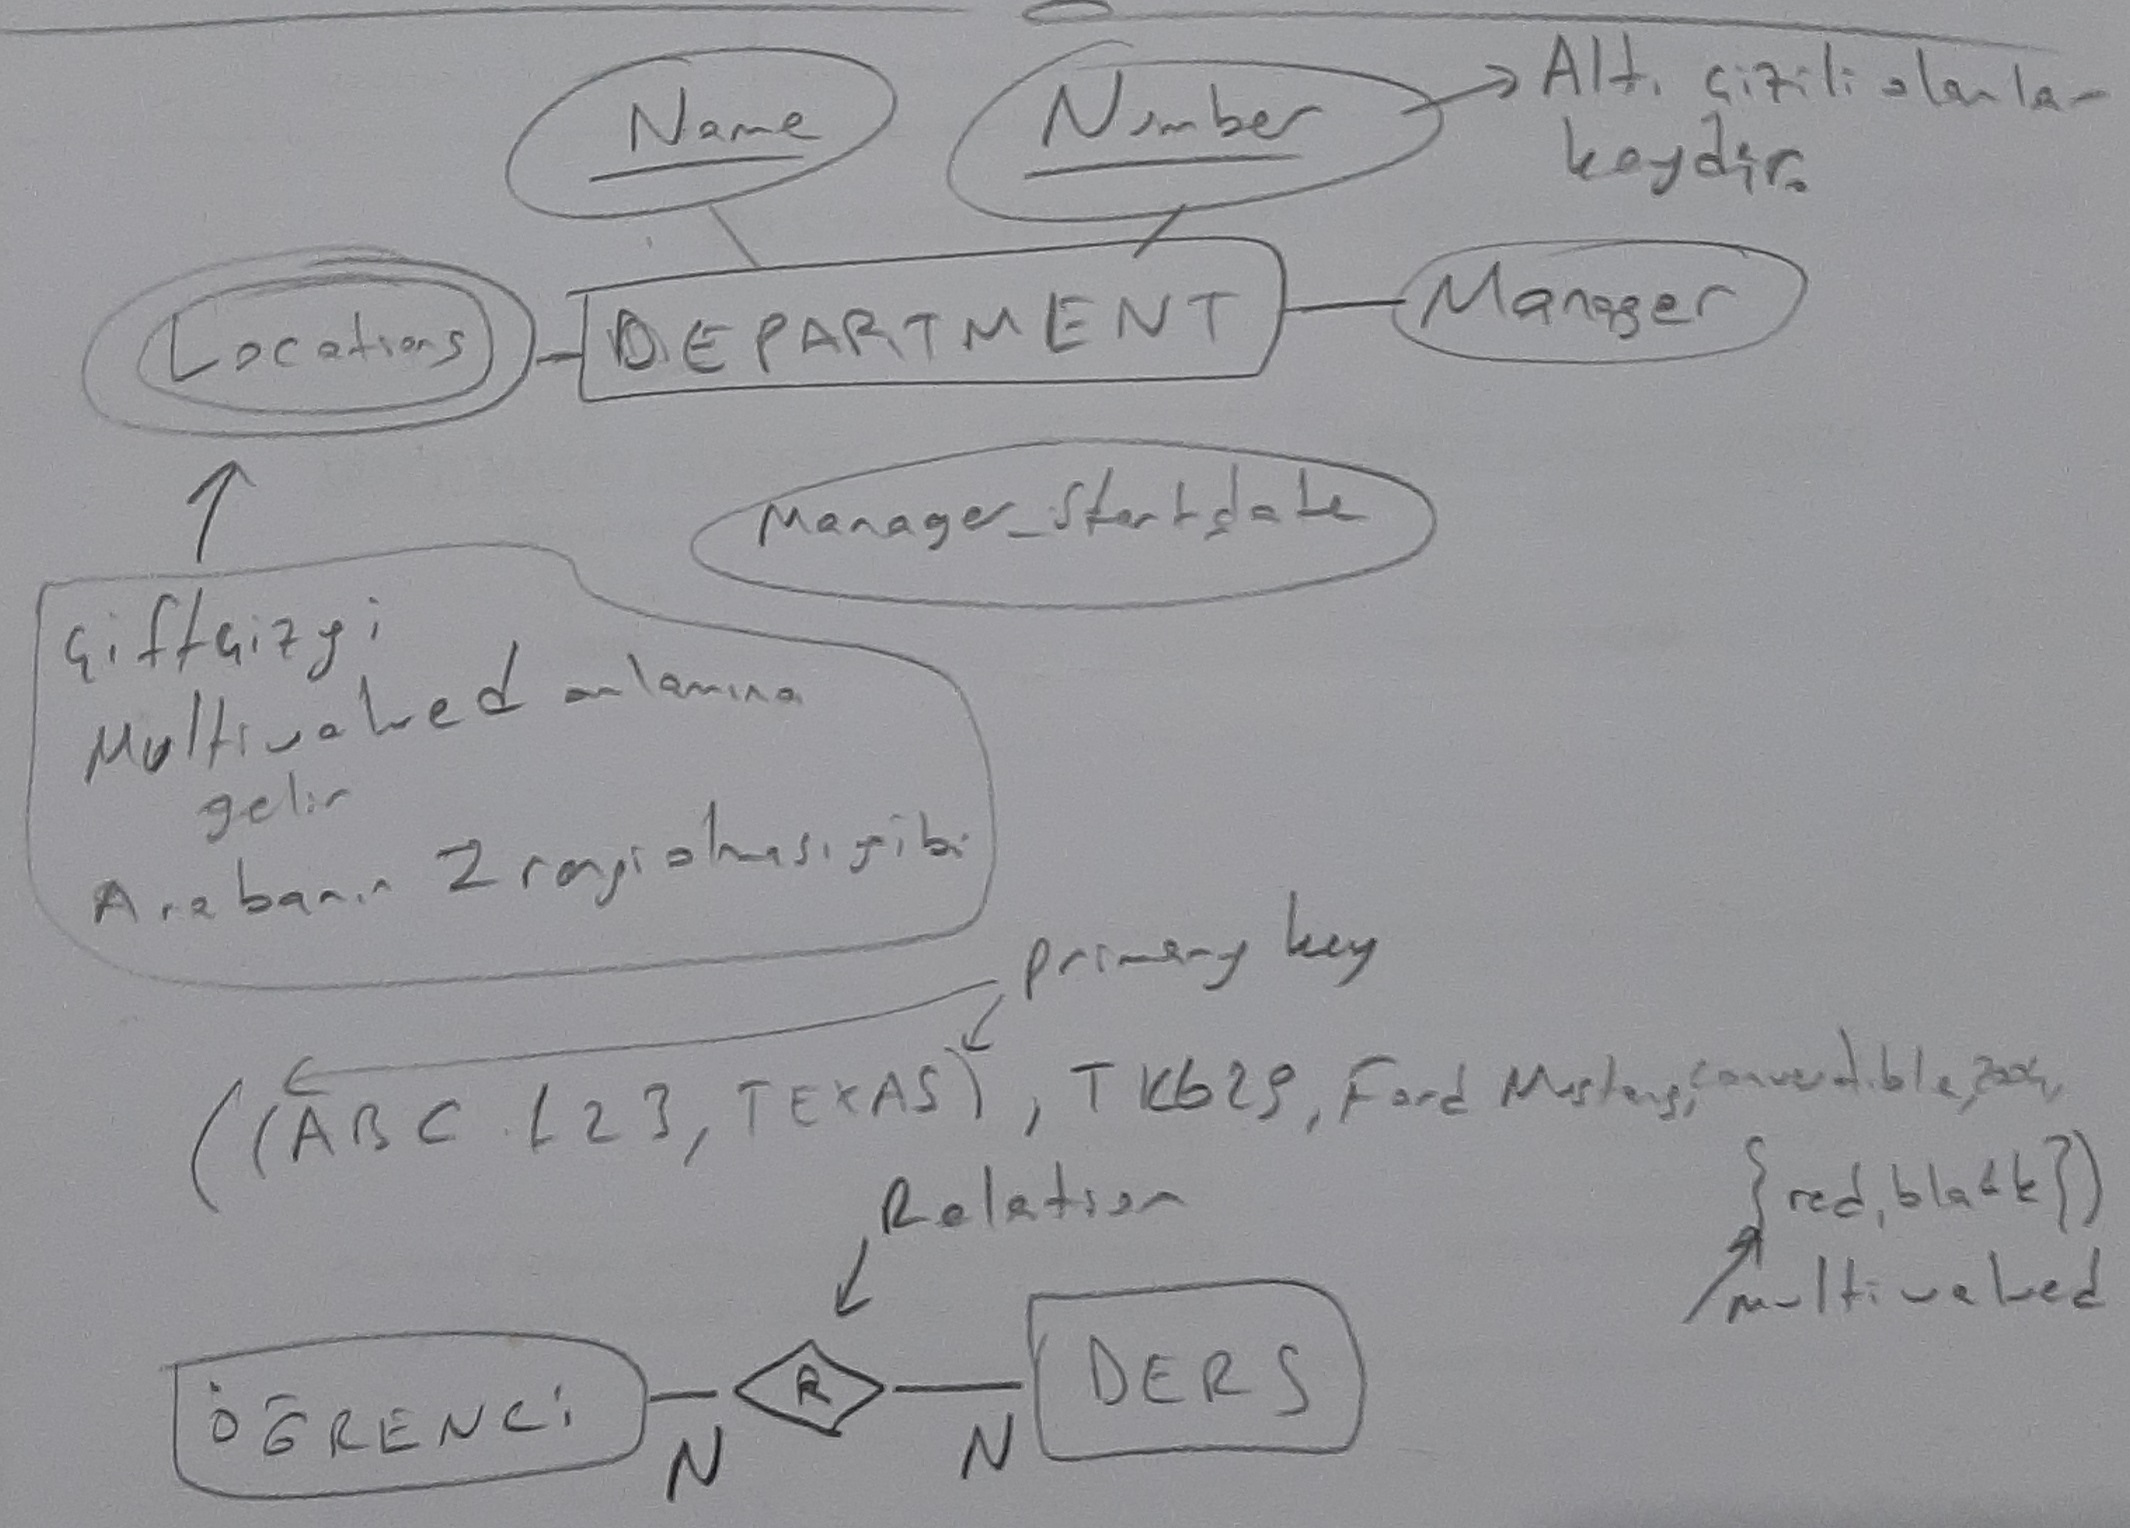 Name
Number
→ Altı çizili olanlar
keydir.
Locations
DEPARTMENT
Manager
Manager_Startdate
çift çizgi
Multivalued anlamına
gelir
Arabanın 2 rengi olması gibi
primary key
((ABC 123, TEXAS), TK629, Ford Mustang, convertible, 2004,
{red, black})
multivalued
Relation
ÖĞRENCİ
N
R
N
DERS